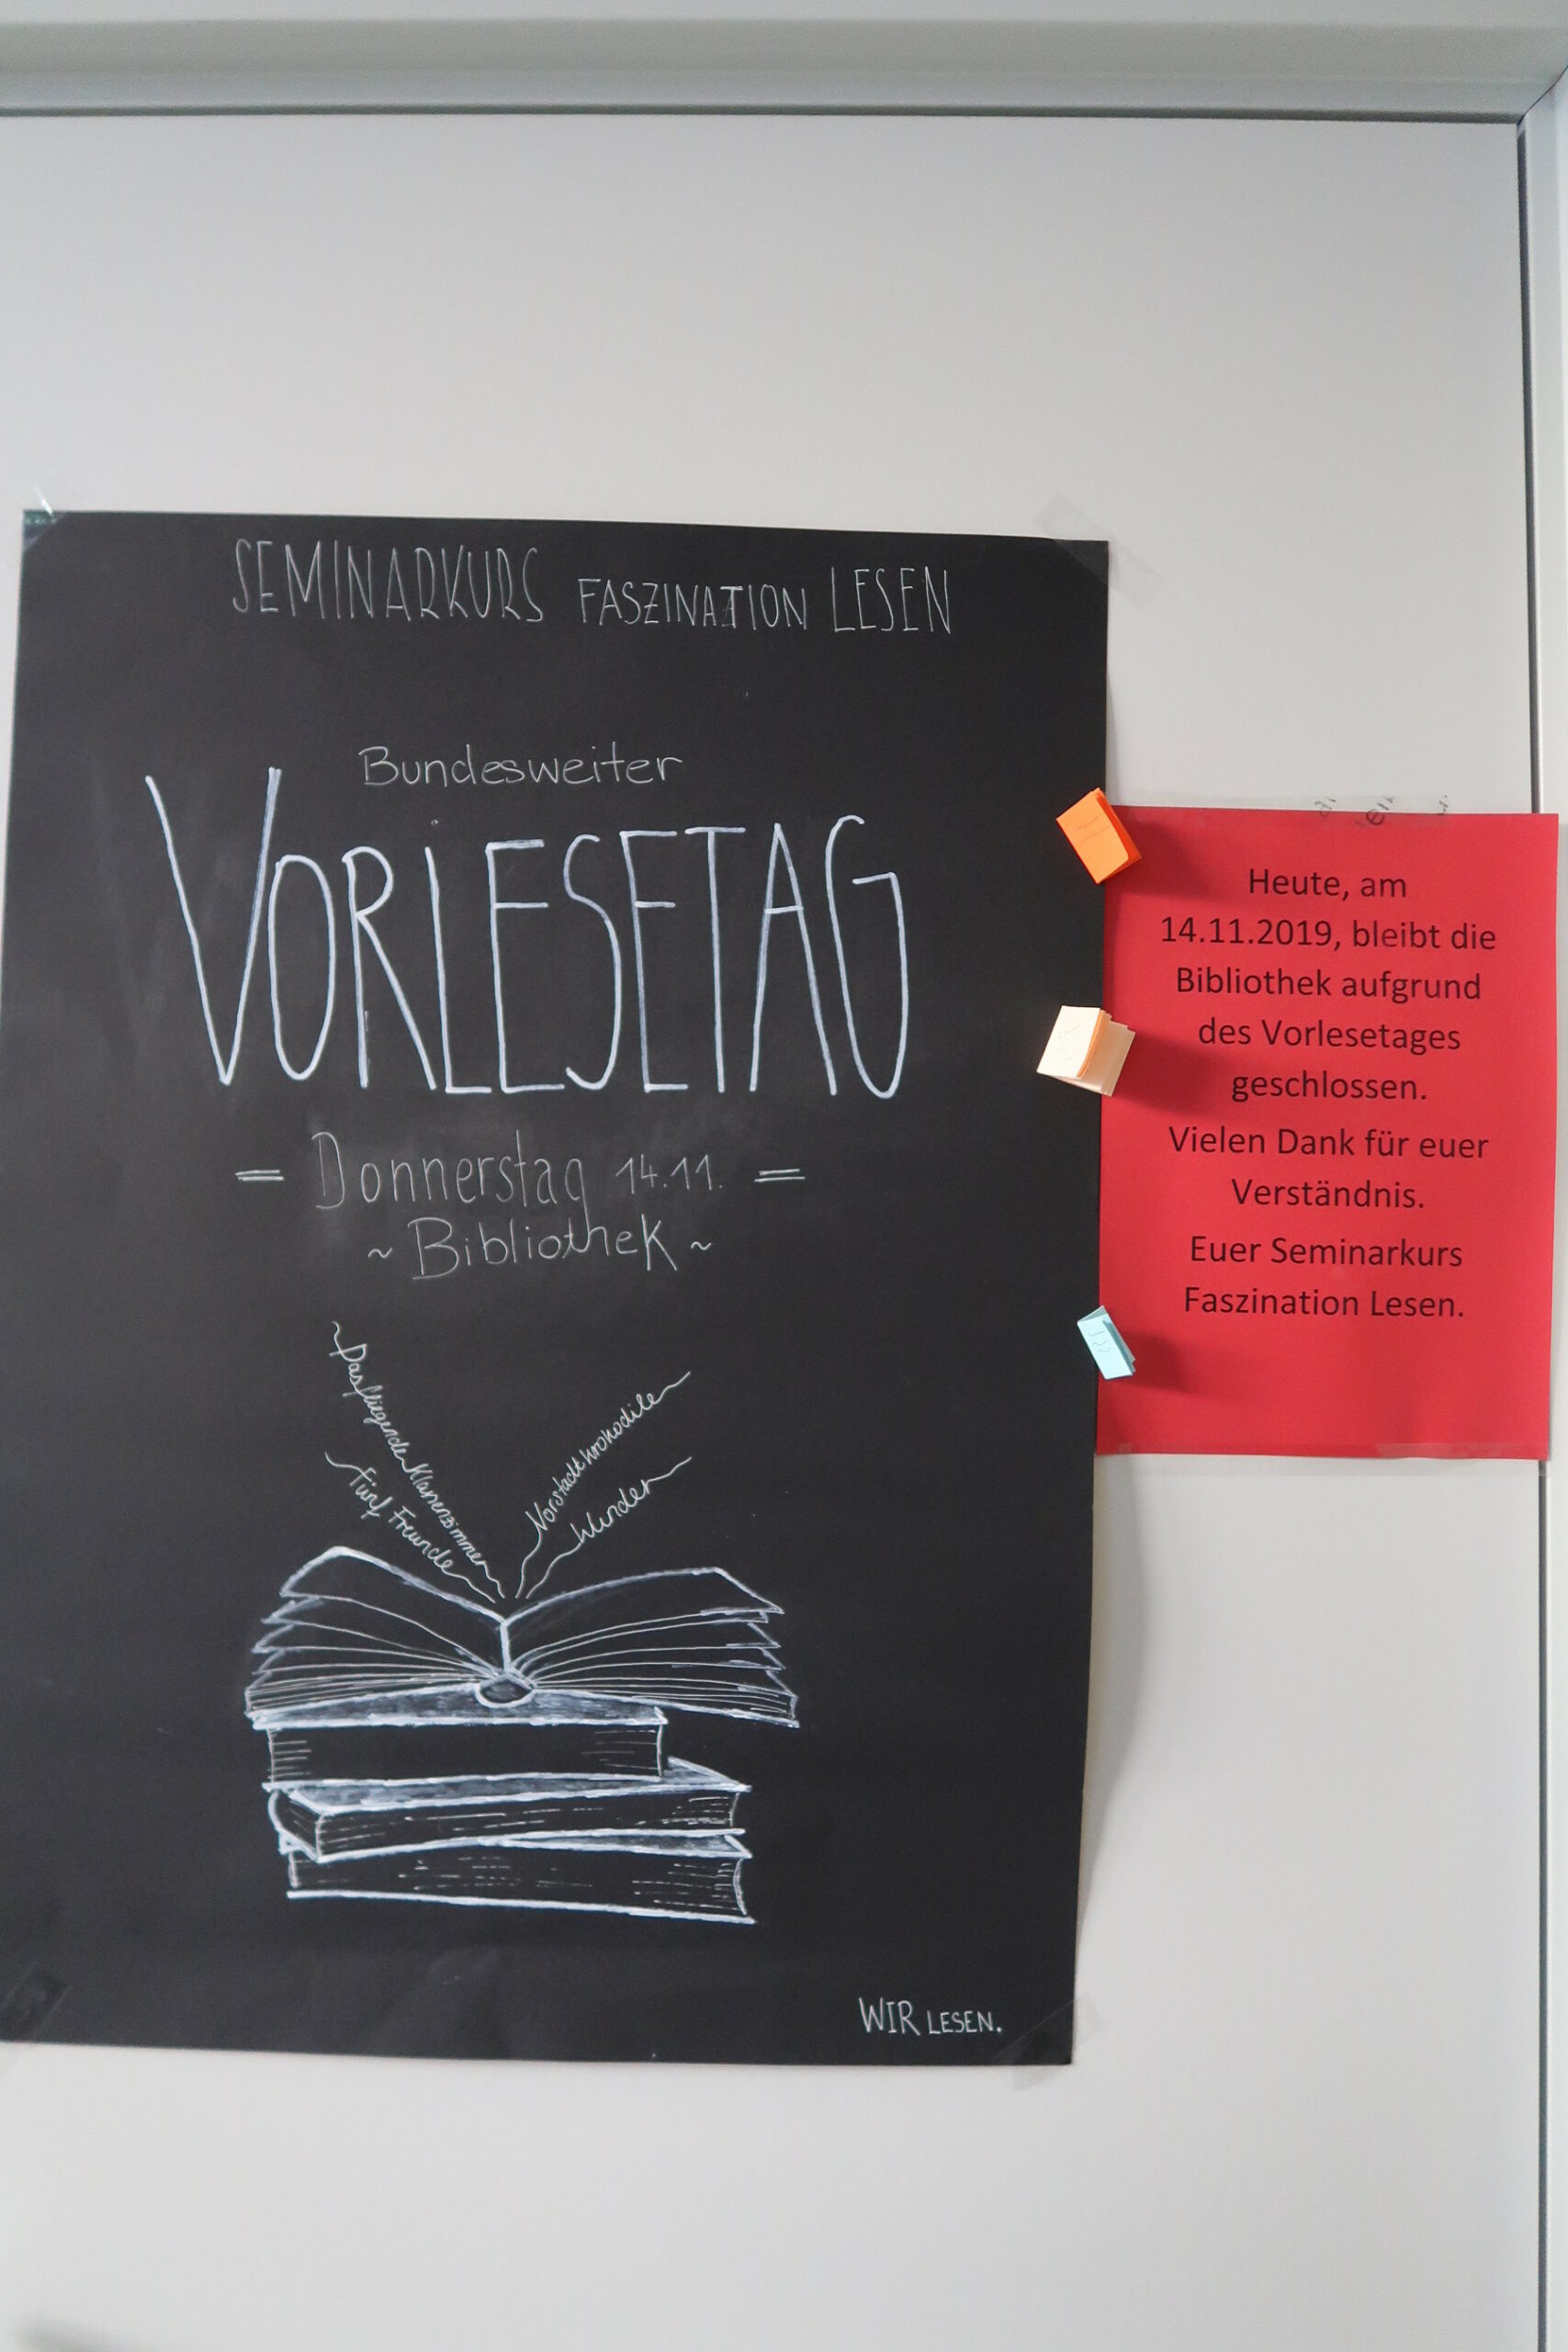 SEMINARKURS FASZINATION LESEN
Bundesweiter
VORLESETAG
= Donnerstag 14.11. =
~ Bibliothek ~
Das fliegende Klassenzimmer
Fünf Freunde
Vorstadtkrokodile
Wunder
WIR LESEN.
Heute, am
14.11.2019, bleibt die
Bibliothek aufgrund
des Vorlesetages
geschlossen.
Vielen Dank für euer
Verständnis.
Euer Seminarkurs
Faszination Lesen.